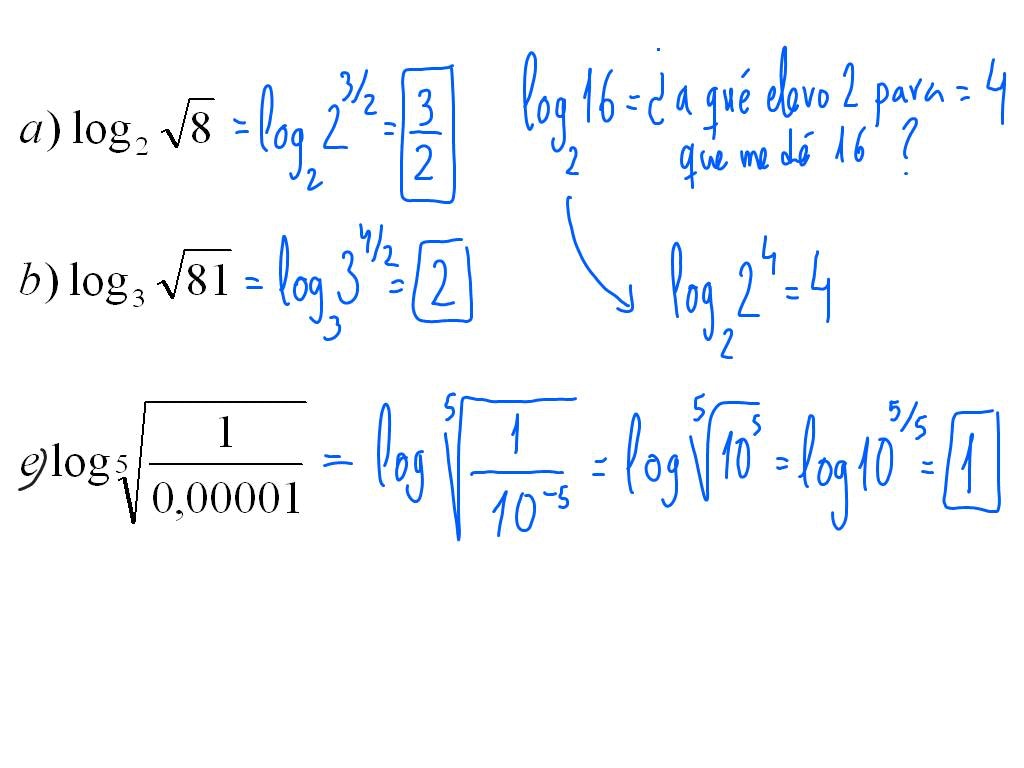 a) log₂ √8 = log₂ 2^(3/2) = 3/2
log₂ 16 = ¿a qué elevo 2 para = 4
que me dé 16 ?
b) log₃ √81 = log₃ 3^(4/2) = 2
log₂ 2⁴ = 4
e) log ⁵√(1/0,00001) = log ⁵√(1/10⁻⁵) = log ⁵√10⁵ = log 10^(5/5) = 1